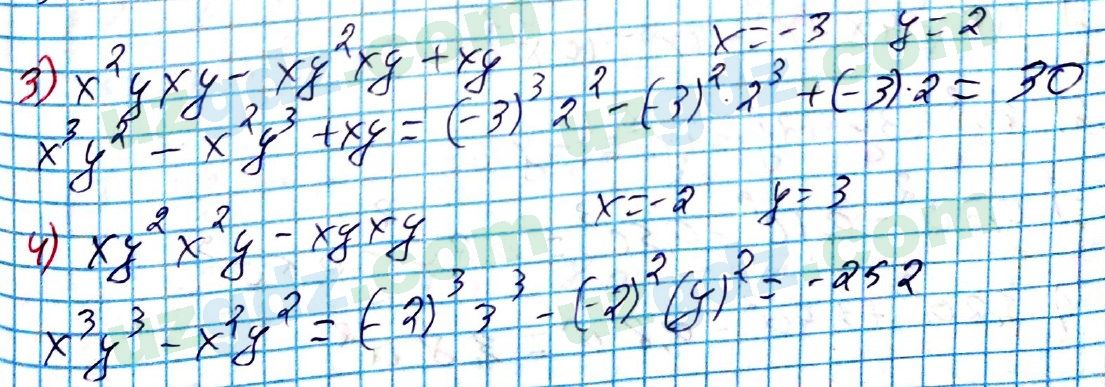 3) x²yxy - xy²xy + xy   x = -3   y = 2
x³y² - x²y³ + xy = (-3)³ 2² - (-3)²·2³ + (-3)·2 = 30
4) xy²x²y - xyxy   x = -2   y = 3
x³y³ - x²y² = (-2)³ 3³ - (-2)² (y)² = -252